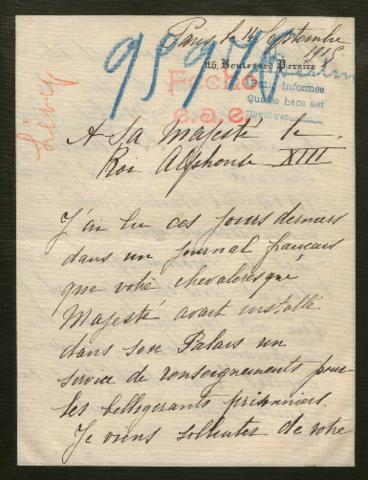 Paris le 14 Septembre
1915
116, Boulevard Pereire
95976
Fecho
c.a.e.
Pedir informes
Lévy
A Sa Majesté le
Roi Alphonse XIII
J'ai lu ces jours derniers
dans un journal français
que votre chevaleresque
Majesté avait installé
dans son Palais un
service de renseignements pour
les belligerants prisonniers.
Je viens solliciter de votre